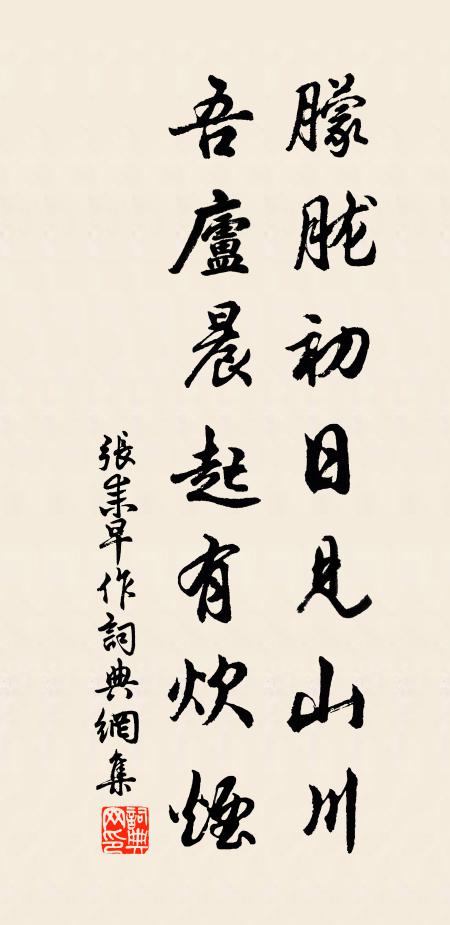 朦朧初日見山川
吾廬晨起有炊煙
張耒早作詞典網集
詞典
网印